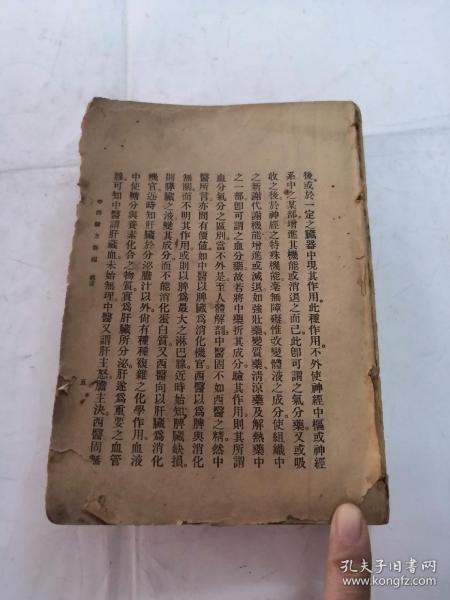 後或於一定之臟器中現其作用此種作用不外使神經中樞或神經
系中之某部增進其機能或消退之而已此卽可謂之氣分藥又或吸
收之後於神經之特殊機能毫無障礙惟改變體液之成分使組織中
之新謝代謝機能增進或減退如強壯藥變質藥淸涼藥及解熱藥中
之一部卽可謂之血分藥故若將中藥折其成分驗其作用則其所謂
血分氣分之區別當不外是至人體解剖中醫固不如西醫之精然中
醫所言亦間有價値如中醫以脾臟爲消化機官西醫以爲脾與消化
無關而不明其作用或則以脾爲最大之淋巴腺近時始知脾臟缺損
則膵臟之液變其成分而不能消化蛋白質又西醫向以肝臟爲消化
機官近時知肝臟於分泌膽汁以外尙有種種複雜之化學作用血液
中使糖分與養素化合之物質實爲肝臟所分泌肝遂爲重要之血管
腺可知中醫謂肝藏血未始無理中醫又謂肝主怒膽主決西醫固
五
孔夫子旧书网
www.kongfz.com